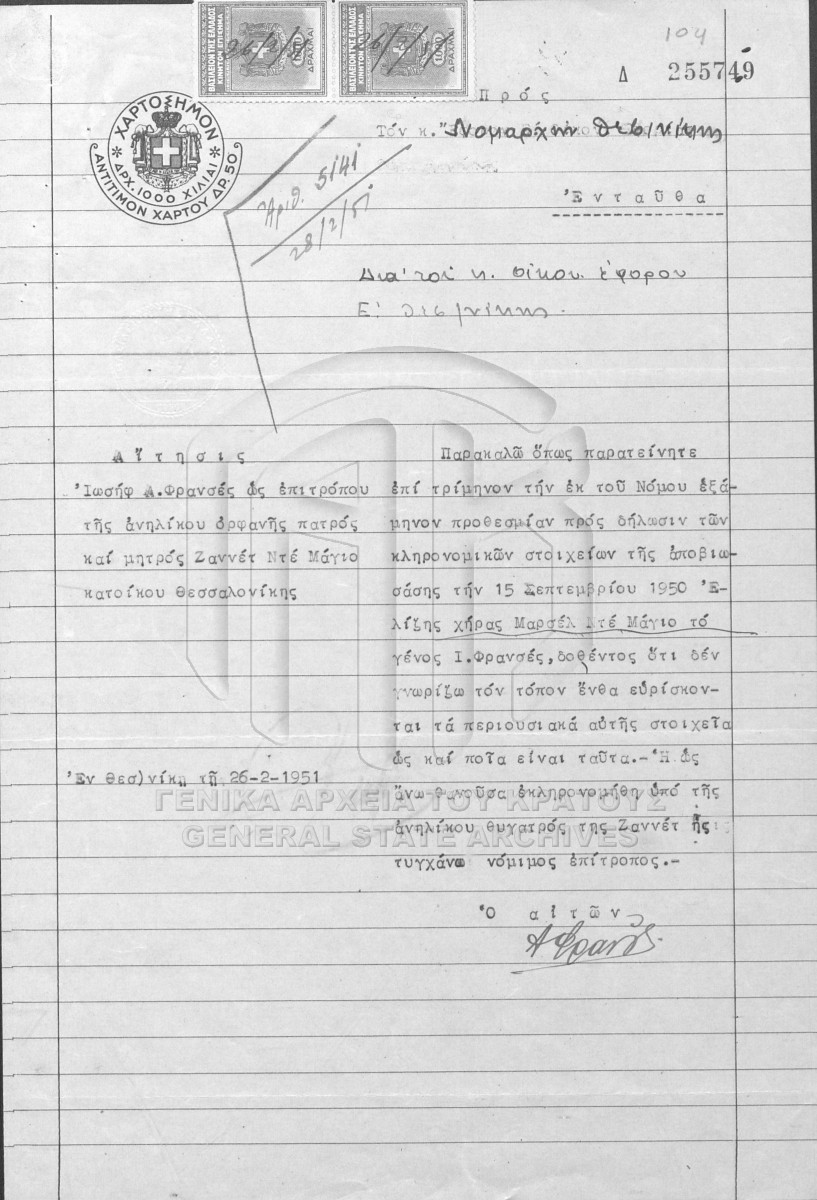 104
Δ 255749
ΒΑΣΙΛΕΙΟΝ ΤΗΣ ΕΛΛΑΔΟΣ
ΚΙΝΗΤΟΝ ΕΠΙΣΗΜΑ
ΔΡΑΧΜΑΙ
26/2/51
ΒΑΣΙΛΕΙΟΝ ΤΗΣ ΕΛΛΑΔΟΣ
ΚΙΝΗΤΟΝ ΕΠΙΣΗΜΑ
ΔΡΑΧΜΑΙ
26/2/51
ΧΑΡΤΟΣΗΜΟΝ
ΔΡΧ. 1000 ΧΙΛΙΑΙ
ΑΝΤΙΤΙΜΟΝ ΧΑΡΤΟΥ ΔΡ. 50
Πρός
Τόν κ. Νομάρχην Θεσ/νίκης
Ἐνταῦθα
Ἀριθ. 5141
28/2/51
Δια τοῦ κ. Οἰκον. Ἐφόρου
Ε' Θεσ/νίκης.
Αἴτησις
Ἰωσήφ Α.Φρανσές ὡς ἐπιτρόπου
τῆς ἀνηλίκου ὀρφανῆς πατρός
καί μητρός Ζαννέτ Ντέ Μάγιο
κατοίκου Θεσσαλονίκης
Ἐν Θεσ)νίκῃ τῇ 26-2-1951
Παρακαλῶ ὅπως παρατείνητε
ἐπί τρίμηνον τήν ἐκ τοῦ Νόμου ἑξά-
μηνον προθεσμίαν πρός δήλωσιν τῶν
κληρονομικῶν στοιχείων τῆς ἀποβιω-
σάσης τήν 15 Σεπτεμβρίου 1950 Ἐ-
λίζης χήρας Μαρσέλ Ντέ Μάγιο τό
γένος Ι.Φρανσές,δοθέντος ὅτι δέν
γνωρίζω τόν τόπον ἔνθα εὑρίσκον-
ται τά περιουσιακά αὐτῆς στοιχεῖα
ὡς καί ποῖα εἶναι ταῦτα.-Ἡ ὡς
ἄνω θανοῦσα ἐκληρονομήθη ὑπό τῆς
ἀνηλίκου θυγατρός της Ζαννέτ ἧς
τυγχάνω νόμιμος ἐπίτροπος.-
Ὁ αἰτῶν
Α Φρανσές
ΓΕΝΙΚΑ ΑΡΧΕΙΑ ΤΟΥ ΚΡΑΤΟΥΣ
GENERAL STATE ARCHIVES